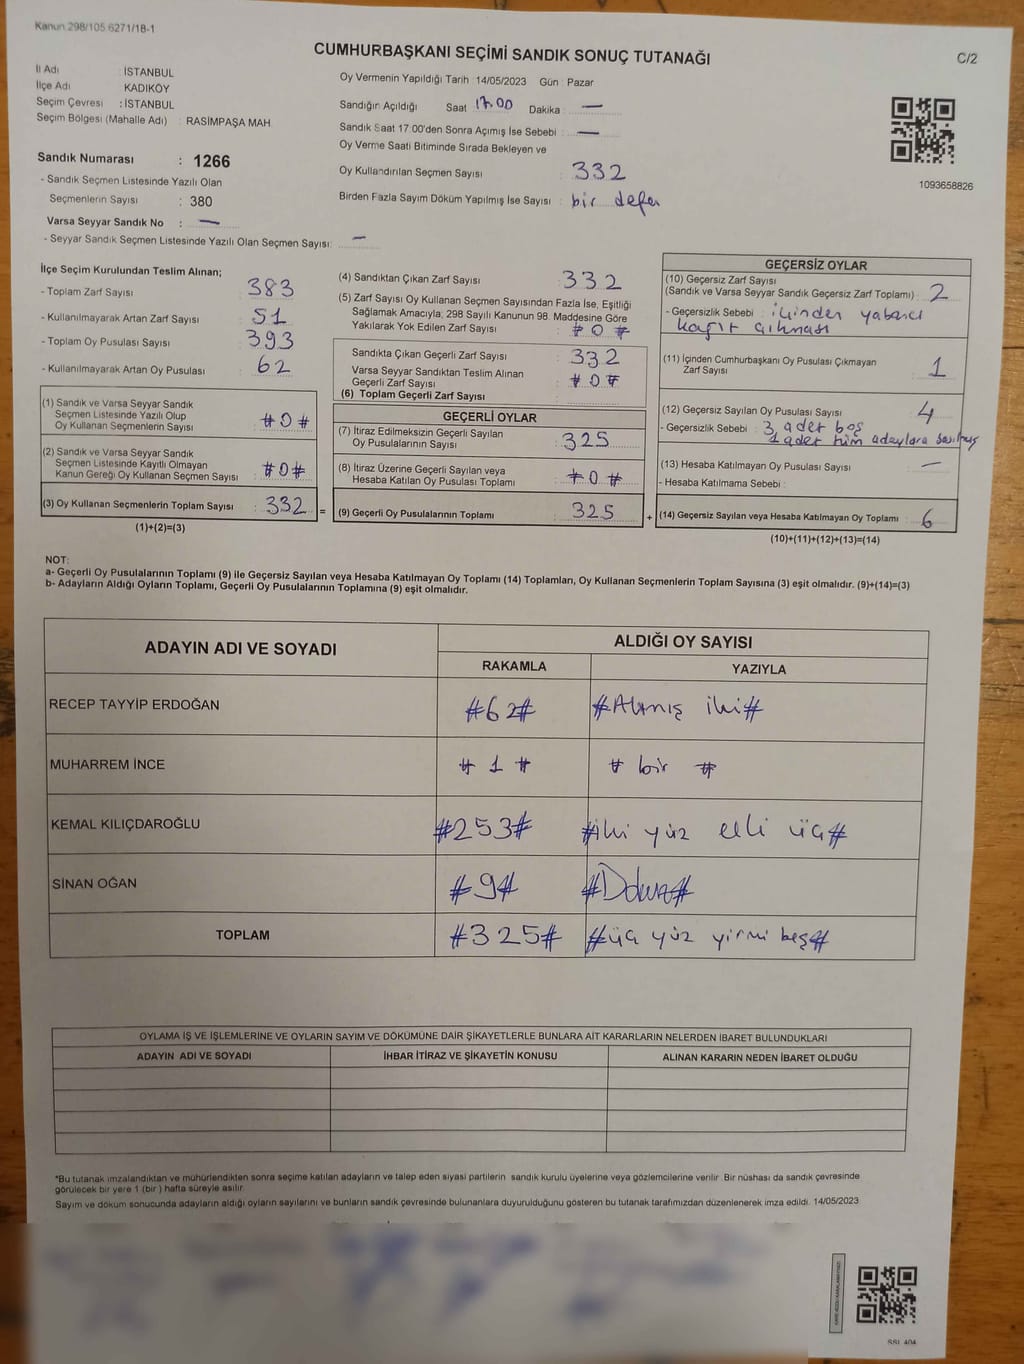 Kanun 298/105 6271/18-1
CUMHURBAŞKANI SEÇİMİ SANDIK SONUÇ TUTANAĞI
C/2
İl Adı : İSTANBUL
İlçe Adı : KADIKÖY
Seçim Çevresi : İSTANBUL
Seçim Bölgesi (Mahalle Adı) : RASİMPAŞA MAH.
Oy Vermenin Yapıldığı Tarih : 14/05/2023 Gün : Pazar
Sandığın Açıldığı Saat : 17.00 Dakika : —
Sandık Saat 17:00'den Sonra Açımış İse Sebebi : —
Oy Verme Saati Bitiminde Sırada Bekleyen ve
Oy Kullandırılan Seçmen Sayısı : 332
Birden Fazla Sayım Döküm Yapılmış İse Sayısı : bir defa
1093658826
Sandık Numarası : 1266
- Sandık Seçmen Listesinde Yazılı Olan
Seçmenlerin Sayısı : 380
Varsa Seyyar Sandık No : —
- Seyyar Sandık Seçmen Listesinde Yazılı Olan Seçmen Sayısı: —
İlçe Seçim Kurulundan Teslim Alınan;
- Toplam Zarf Sayısı : 383
- Kullanılmayarak Artan Zarf Sayısı : 51
- Toplam Oy Pusulası Sayısı : 393
- Kullanılmayarak Artan Oy Pusulası : 62
(1) Sandık ve Varsa Seyyar Sandık
Seçmen Listesinde Yazılı Olup
Oy Kullanan Seçmenlerin Sayısı : #0#
(2) Sandık ve Varsa Seyyar Sandık
Seçmen Listesinde Kayıtlı Olmayan
Kanun Gereği Oy Kullanan Seçmen Sayısı : #0#
(3) Oy Kullanan Seçmenlerin Toplam Sayısı : 332 =
(1)+(2)=(3)
(4) Sandıktan Çıkan Zarf Sayısı : 332
(5) Zarf Sayısı Oy Kullanan Seçmen Sayısından Fazla İse, Eşitliği
Sağlamak Amacıyla; 298 Sayılı Kanunun 98. Maddesine Göre
Yakılarak Yok Edilen Zarf Sayısı : #0#
Sandıkta Çıkan Geçerli Zarf Sayısı : 332
Varsa Seyyar Sandıktan Teslim Alınan
Geçerli Zarf Sayısı : #0#
(6) Toplam Geçerli Zarf Sayısı :
GEÇERLİ OYLAR
(7) İtiraz Edilmeksizin Geçerli Sayılan
Oy Pusulalarının Sayısı : 325
(8) İtiraz Üzerine Geçerli Sayılan veya
Hesaba Katılan Oy Pusulası Toplamı : #0#
(9) Geçerli Oy Pusulalarının Toplamı : 325 +
GEÇERSİZ OYLAR
(10) Geçersiz Zarf Sayısı
(Sandık ve Varsa Seyyar Sandık Geçersiz Zarf Toplamı) : 2
- Geçersizlik Sebebi : içinden yabancı
kağıt çıkması
(11) İçinden Cumhurbaşkanı Oy Pusulası Çıkmayan
Zarf Sayısı : 1
(12) Geçersiz Sayılan Oy Pusulası Sayısı : 4
- Geçersizlik Sebebi : 3 adet boş
1 adet tüm adaylara basılmış
(13) Hesaba Katılmayan Oy Pusulası Sayısı : —
- Hesaba Katılmama Sebebi :
(14) Geçersiz Sayılan veya Hesaba Katılmayan Oy Toplamı : 6
(10)+(11)+(12)+(13)=(14)
NOT:
a- Geçerli Oy Pusulalarının Toplamı (9) ile Geçersiz Sayılan veya Hesaba Katılmayan Oy Toplamı (14) Toplamları, Oy Kullanan Seçmenlerin Toplam Sayısına (3) eşit olmalıdır. (9)+(14)=(3)
b- Adayların Aldığı Oyların Toplamı, Geçerli Oy Pusulalarının Toplamına (9) eşit olmalıdır.
ADAYIN ADI VE SOYADI ALDIĞI OY SAYISI
RAKAMLA YAZIYLA
RECEP TAYYİP ERDOĞAN #62# #Altmış iki#
MUHARREM İNCE # 1 # # bir #
KEMAL KILIÇDAROĞLU #253# #iki yüz elli üç#
SİNAN OĞAN #9# #Dokuz#
TOPLAM #325# #üç yüz yirmi beş#
OYLAMA İŞ VE İŞLEMLERİNE VE OYLARIN SAYIM VE DÖKÜMÜNE DAİR ŞİKAYETLERLE BUNLARA AİT KARARLARIN NELERDEN İBARET BULUNDUKLARI
ADAYIN ADI VE SOYADI İHBAR İTİRAZ VE ŞİKAYETİN KONUSU ALINAN KARARIN NEDEN İBARET OLDUĞU
*Bu tutanak imzalandıktan ve mühürlendikten sonra seçime katılan adayların ve talep eden siyasi partilerin sandık kurulu üyelerine veya gözlemcilerine verilir. Bir nüshası da sandık çevresinde
görülecek bir yere 1 (bir) hafta süreyle asılır.
Sayım ve döküm sonucunda adayların aldığı oyların sayılarını ve bunların sandık çevresinde bulunanlara duyurulduğunu gösteren bu tutanak tarafımızdan düzenlenerek imza edildi. 14/05/2023